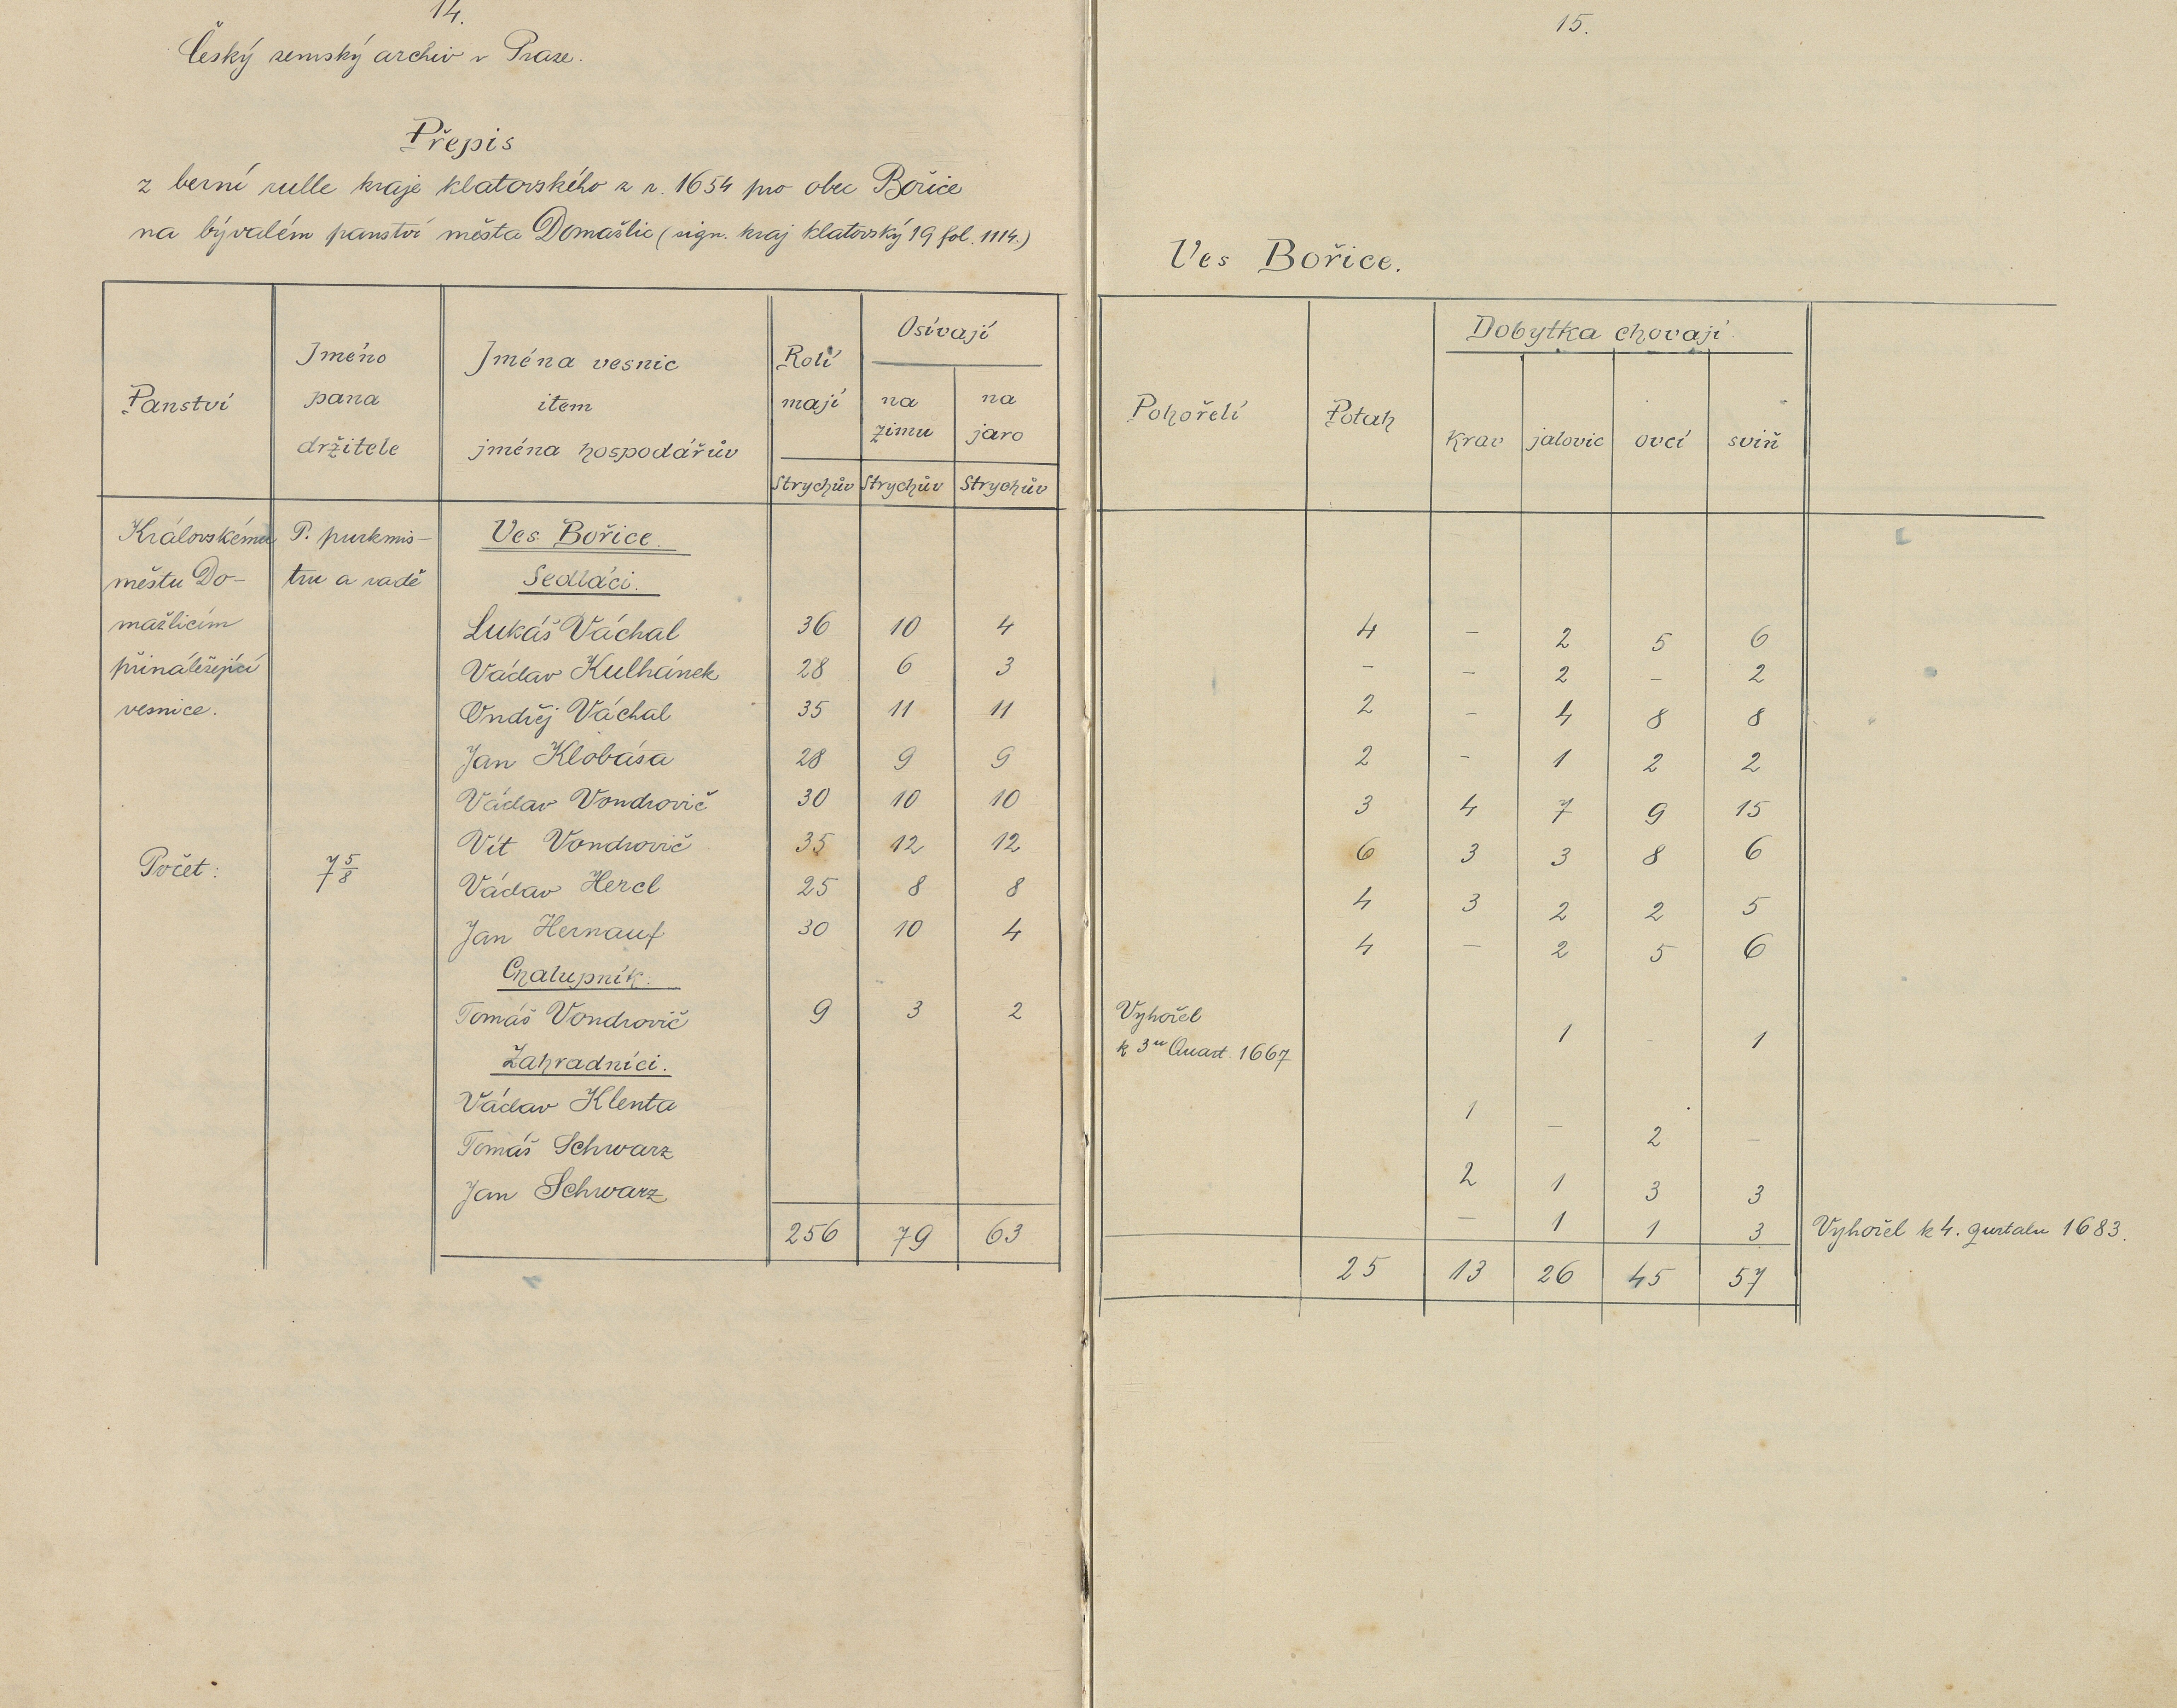 14.
Český zemský archiv v Praze.
Přepis
z berní rulle kraje klatovského z r. 1654 pro obec Bořice
na bývalém panství města Domažlic (sign. kraj klatovský 19 fol. 1114.)
Panství | Jméno pana držitele | Jména vesnic item jména hospodářův | Rolí mají | Osívají na zimu | na jaro
Strychův Strychův Strychův
Královskému P. purkmis- Ves Bořice.
městu Do- tru a radě Sedláci.
mažlicím Lukáš Váchal 36 10 4
přináležející Václav Kulhánek 28 6 3
vesnice. Ondřej Váchal 35 11 11
Jan Klobása 28 9 9
Václav Vondrovič 30 10 10
Vít Vondrovič 35 12 12
Počet: 7 5/8 Václav Hercl 25 8 8
Jan Hernauf 30 10 4
Chalupník:
Tomáš Vondrovič 9 3 2
Zahradníci.
Václav Klenta
Tomáš Schwarz
Jan Schwarz
256 79 63
15.
Ves Bořice.
Pohořelí | Potah | Dobytka chovají.
krav jalovic ovcí sviň
4 – 2 5 6
– – 2 – 2
2 – 4 8 8
2 – 1 2 2
3 4 7 9 15
6 3 3 8 6
4 3 2 2 5
4 – 2 5 6
Vyhořel
k 3u Quart. 1667 1 – 1
1 – 2 –
2 1 3 3
– 1 1 3 Vyhořel k 4. qurtalu 1683.
25 13 26 45 57